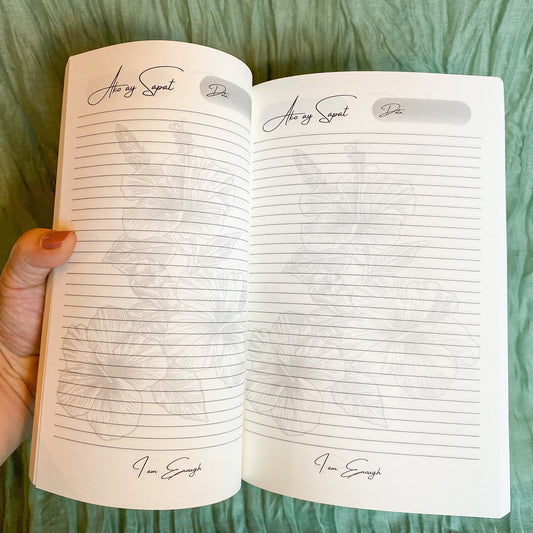 Ako ay Sapat
Date
I am Enough
Ako ay Sapat
Date
I am Enough